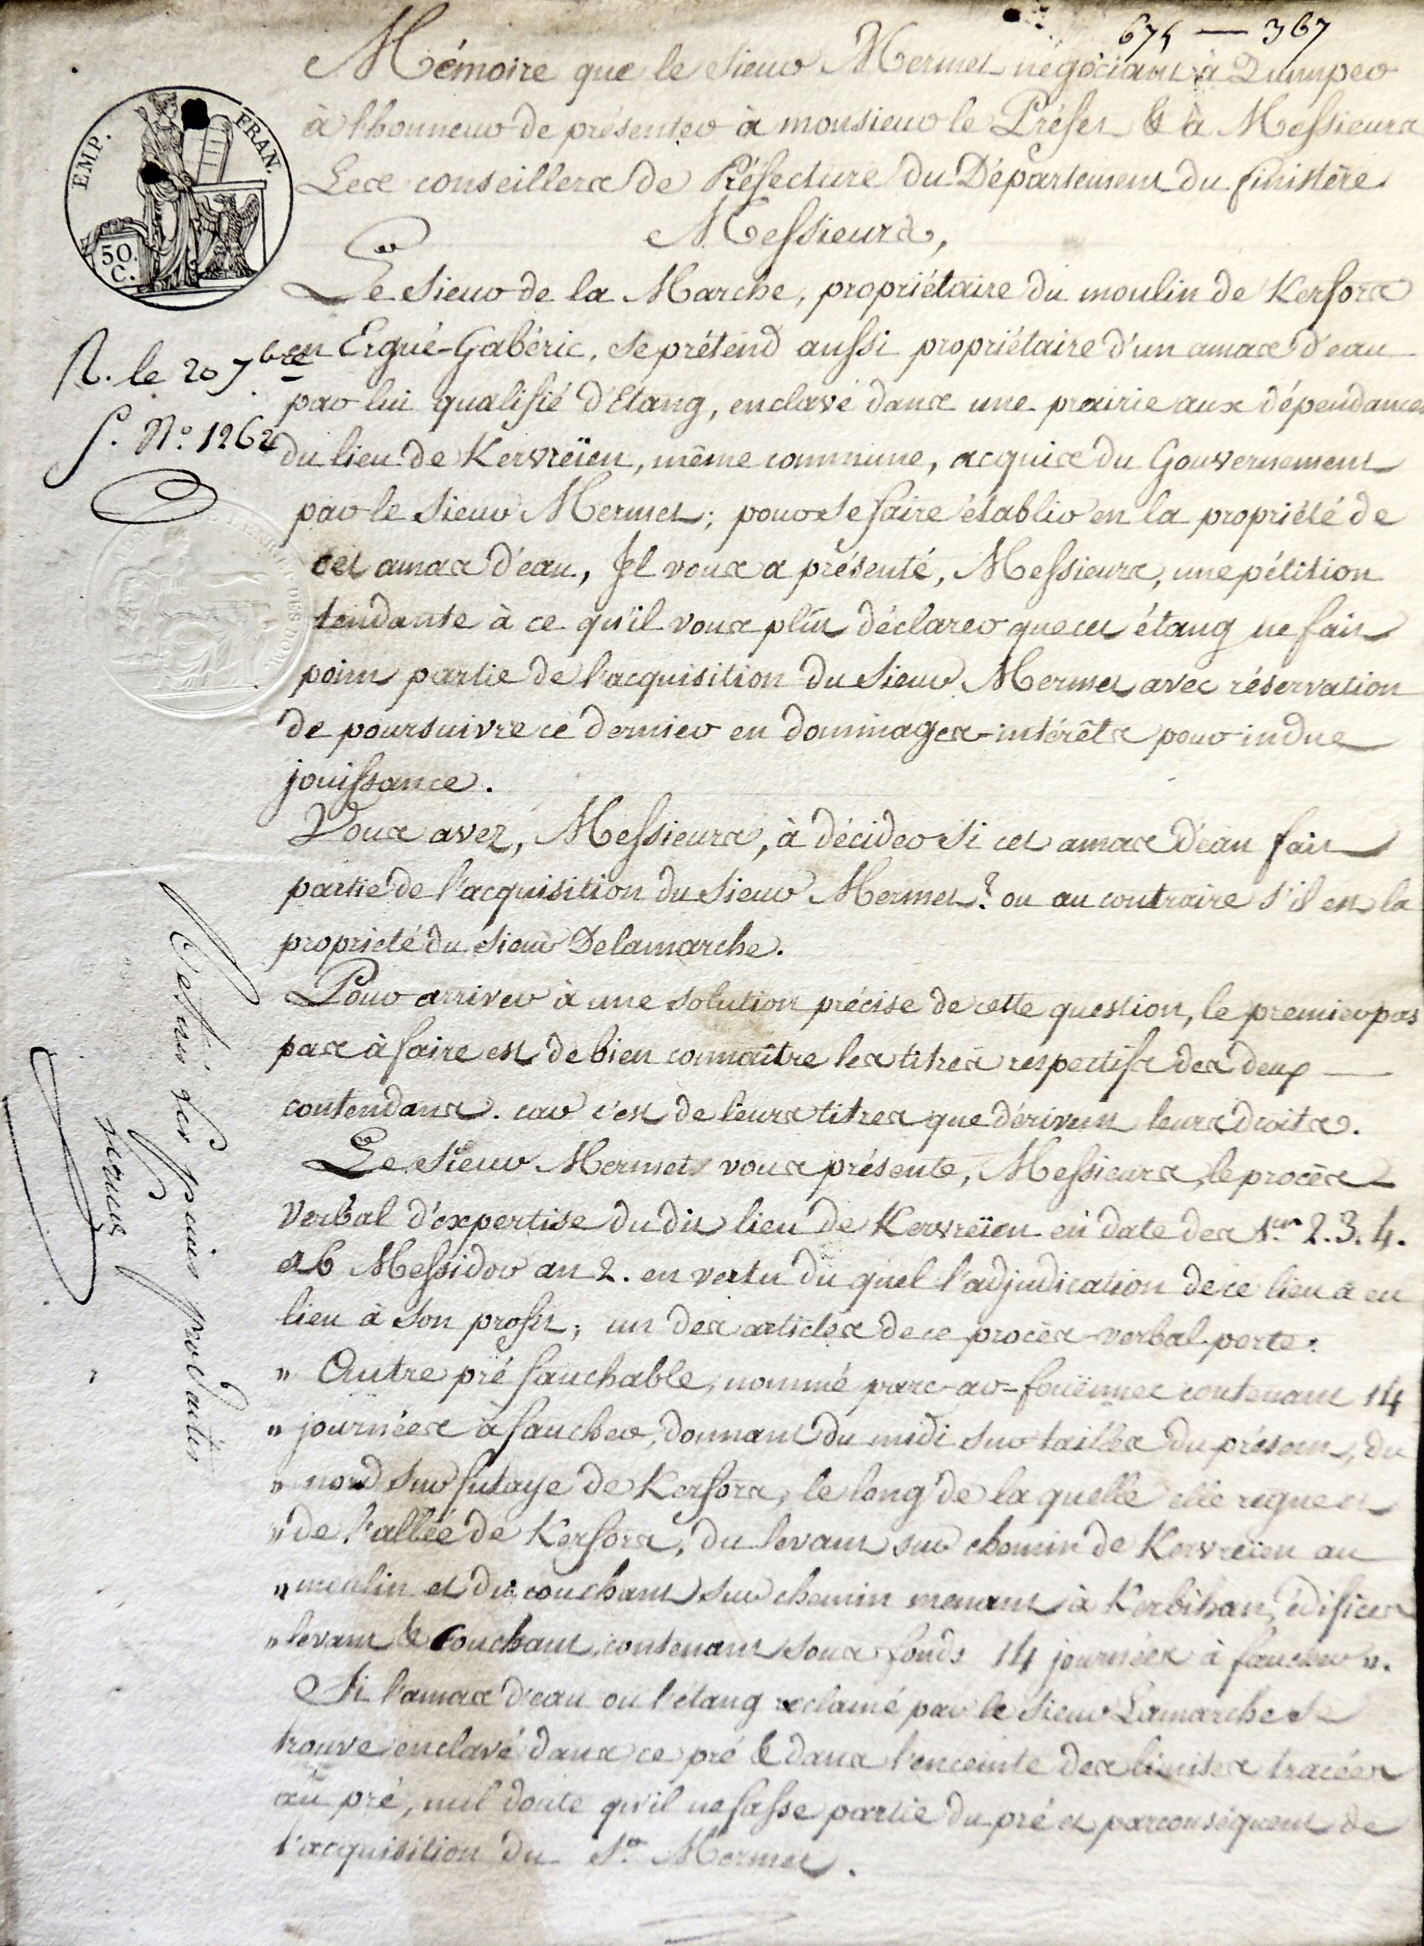 675 — 367
Mémoire que le sieur Mermet négociant à Quimper
à l'honneur de présenter à monsieur le Préfet & à Messieurs
Les conseillers de Préfecture du Département du finistère
Messieurs,
EMP. FRAN.
50 C.
Le sieur de la Marche, propriétaire du moulin de Kerfors
R. le 20 7bre
en Ergué-Gabéric, se prétend aussi propriétaire d'un amas d'eau
par lui qualifié d'Etang, enclavé dans une prairie aux dépendances
S. N.o 1262
du lieu de Kervréïen, même commune, acquis du Gouvernement
par le sieur Mermet; pour se faire établir en la propriété de
cet amas d'eau, Il vous a présenté, Messieurs, une pétition
tendante à ce qu'il vous plût déclarer que cet étang ne fait
point partie de l'acquisition du sieur Mermet avec réservation
de poursuivre ce dernier en dommages-intérêts pour indue
jouissance.
Vous avez, Messieurs, à décider si cet amas d'eau fait
partie de l'acquisition du sieur Mermet? ou au contraire s'il est la
propriété du sieur Delamarche.
Pour arriver à une solution précise de cette question, le premier pas
pas à faire est de bien connaître les titres respectifs des deux
contendans. car c'est de leurs titres que dérivent leurs droits.
Le sieur Mermet vous présente, Messieurs, le procès
verbal d'expertise du dit lieu de Kervréïen en date des 1.er 2. 3. 4.
et 6 Messidor an 2. en vertu du quel l'adjudication de ce lieu a eu
lieu à son profit; un des articles de ce procès-verbal porte:
" Autre pré fauchable, nommé parc-ar-fouënnec contenant 14
" journées à faucher, donnant du midi sur tailles du présent, du
" nord sur futaye de Kerfors, le long de la quelle elle regne et
" de l'allée de Kerfors, du levant sur chemin de Kervréïen au
" moulin et du couchant sur chemin menant à Kerbihan, édifices
" levant & couchant, contenant sous fonds 14 journées à faucher ".
Si l'amas d'eau ou l'étang réclamé par le sieur Lamarche se
trouve enclavé dans ce pré & dans l'enceinte des limites tracées
au pré, nul doute qu'il ne fasse partie du pré et parconséquent de
l'acquisition du S.r Mermet.